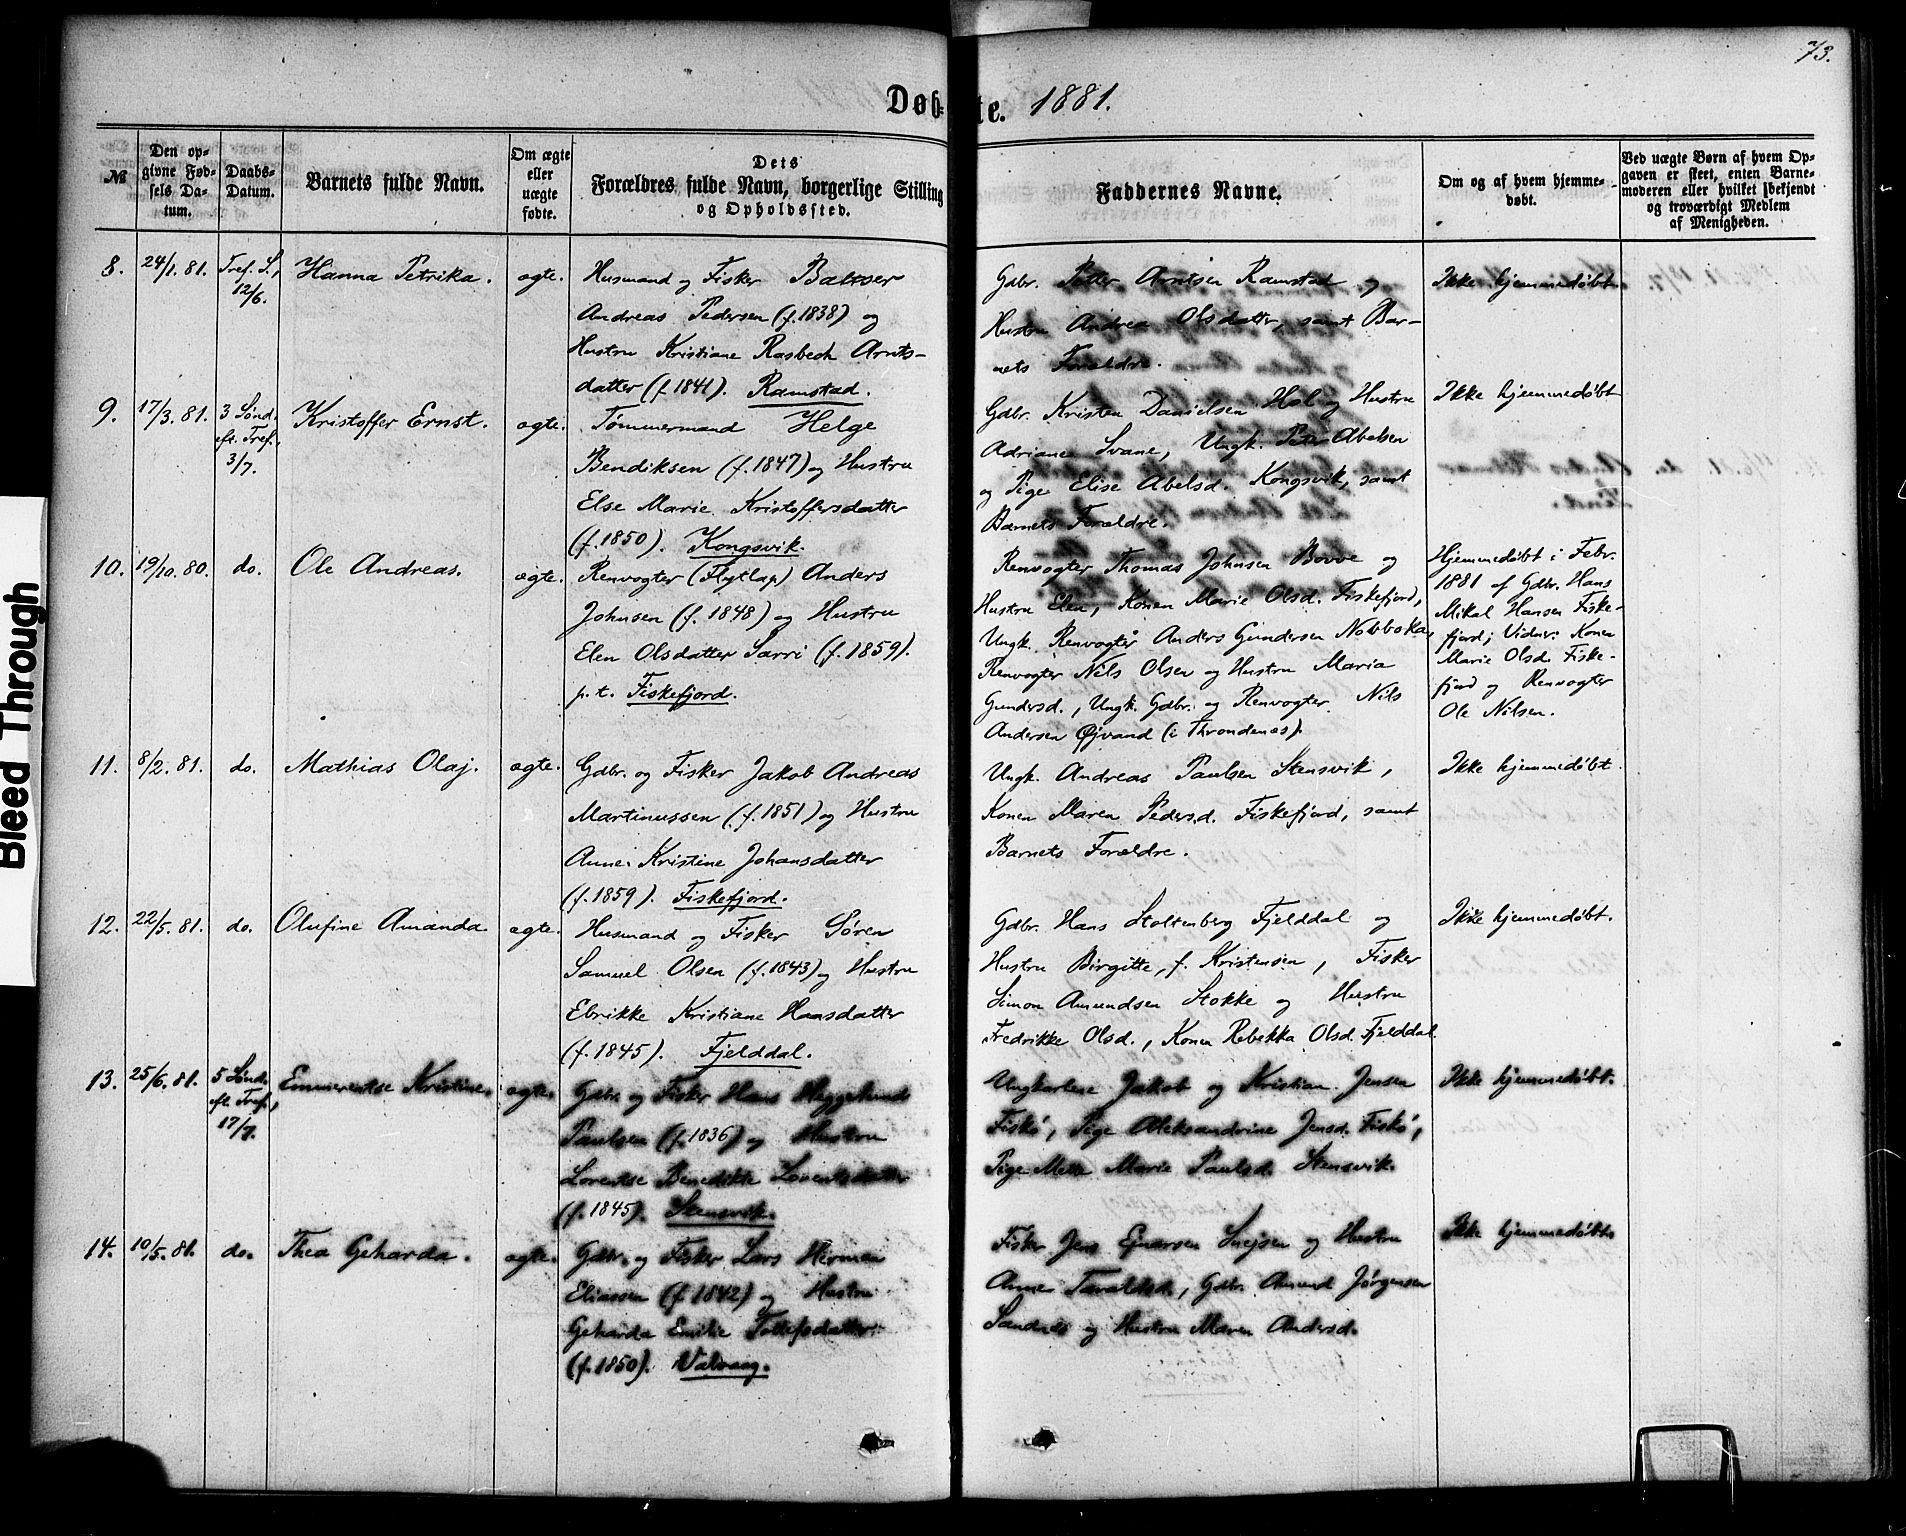 73.
Døb-te. 1881.
№
Den op-
givne Fød-
sels Da-
tum.
Daabs-
Datum.
Barnets fulde Navn.
Om ægte
eller
uægte
fødte.
Dets
Forældres fulde Navn, borgerlige Stilling
og Opholdssted.
Faddernes Navne.
Om og af hvem hjemme-
døbt.
Ved uægte Børn af hvem Op-
gaven er skeet, enten Barne-
moderen eller hvilket bekjendt
og troværdigt Medlem
af Menigheden.
8. 24/1. 81. Tref. S., 12/6. Hanna Petrika. ægte.
Husmand og Fisker Baltser
Andreas Pedersen (f. 1838) og
Hustru Kristiane Rasbech Arnts-
datter (f. 1841). Ramstad.
Gdbr. Peter Arntsen Ramstad og
Hustru Andrea Olsdatter, samt Bar-
nets Forældre.
Ikke hjemmedøbt.
9. 17/3. 81. 3 Sønd. eft. Tref., 3/7. Kristoffer Ernst. ægte.
Tømmermand Helge
Bendiksen (f. 1847) og Hustru
Else Marie Kristoffersdatter
(f. 1850). Kongsvik.
Gdbr. Kristen Danielsen Hol og Hustru
Adriane Svane, Ungk. Peter Abelsen
og Pige Elise Abelsd. Kongsvik, samt
Barnets Forældre.
Ikke hjemmedøbt
10. 19/10. 80. do. Ole Andreas. ægte.
Renvogter (Flytlap) Anders
Johnsen (f. 1848) og Hustru
Elen Olsdatter Sarri (f. 1859).
p. t. Fiskefjord.
Renvogter Thomas Johnsen Bovve og
Hustru Elen, Konen Marie Olsd. Fiskefjord,
Ungk. Renvogter Anders Gundersen Nobboka,
Renvogter Nils Olsen og Hustru Maria
Gundersd., Ungk. Gdbr. og Renvogter Nils
Andersen Øjvand (i Throndenæs).
Hjemmedøbt i Febr.
1881 af Gdbr. Hans
Mikal Hansen Fiske-
fjord; Vidner: Konen
Marie Olsd. Fiske-
fjord og Renvogter
Ole Nilsen.
11. 8/2. 81. do. Mathias Olaj. ægte.
Gdbr. og Fisker Jakob Andreas
Martinussen (f. 1851) og Hustru
Anne Kristine Johansdatter
(f. 1859). Fiskefjord.
Ungk. Andreas Paulsen Stensvik,
Konen Maren Pedersd. Fiskefjord, samt
Barnets Forældre.
Ikke hjemmedøbt.
12. 22/5. 81. do. Olufine Amanda. ægte.
Husmand og Fisker Søren
Samuel Olsen (f. 1843) og Hustru
Ebrikke Kristiane Hansdatter
(f. 1845). Fjelddal.
Gdbr. Hans Stoltenberg Fjelddal og
Hustru Birgitte, f. Kristensen, Fisker
Simon Amundsen Stokke og Hustru
Fredrikke Olsd., Konen Rebekka Olsd. Fjelddal.
Ikke hjemmedøbt.
13. 25/6. 81. 5 Sønd. eft. Tref., 17/7. Emmerentse Kristine. ægte.
Gdbr. og Fisker Hans Heggelund
Paulsen (f. 1836) og Hustru
Lorentse Benedikte Lorentsdatter
(f. 1845). Stensvik.
Ungkarlene Jakob og Kristian Jensen
Fiskø, Pige Aleksandrine Jensd. Fiskø,
Pige Mette Marie Paulsd. Stensvik.
Ikke hjemmedøbt.
14. 10/5. 81. do. Thea Geharda. ægte.
Gdbr. og Fisker Lars Herman
Eliassen (f. 1842) og Hustru
Geharda Emilie Tollefsdatter
(f. 1850). Valvaag.
Fisker Jens Ejnarsen Snejsen og Hustru
Anne Tavaldsd., Gdbr. Amund Jørgensen
Sandnes og Hustru Maren Andersd.
Ikke hjemmedøbt.
Bleed Through